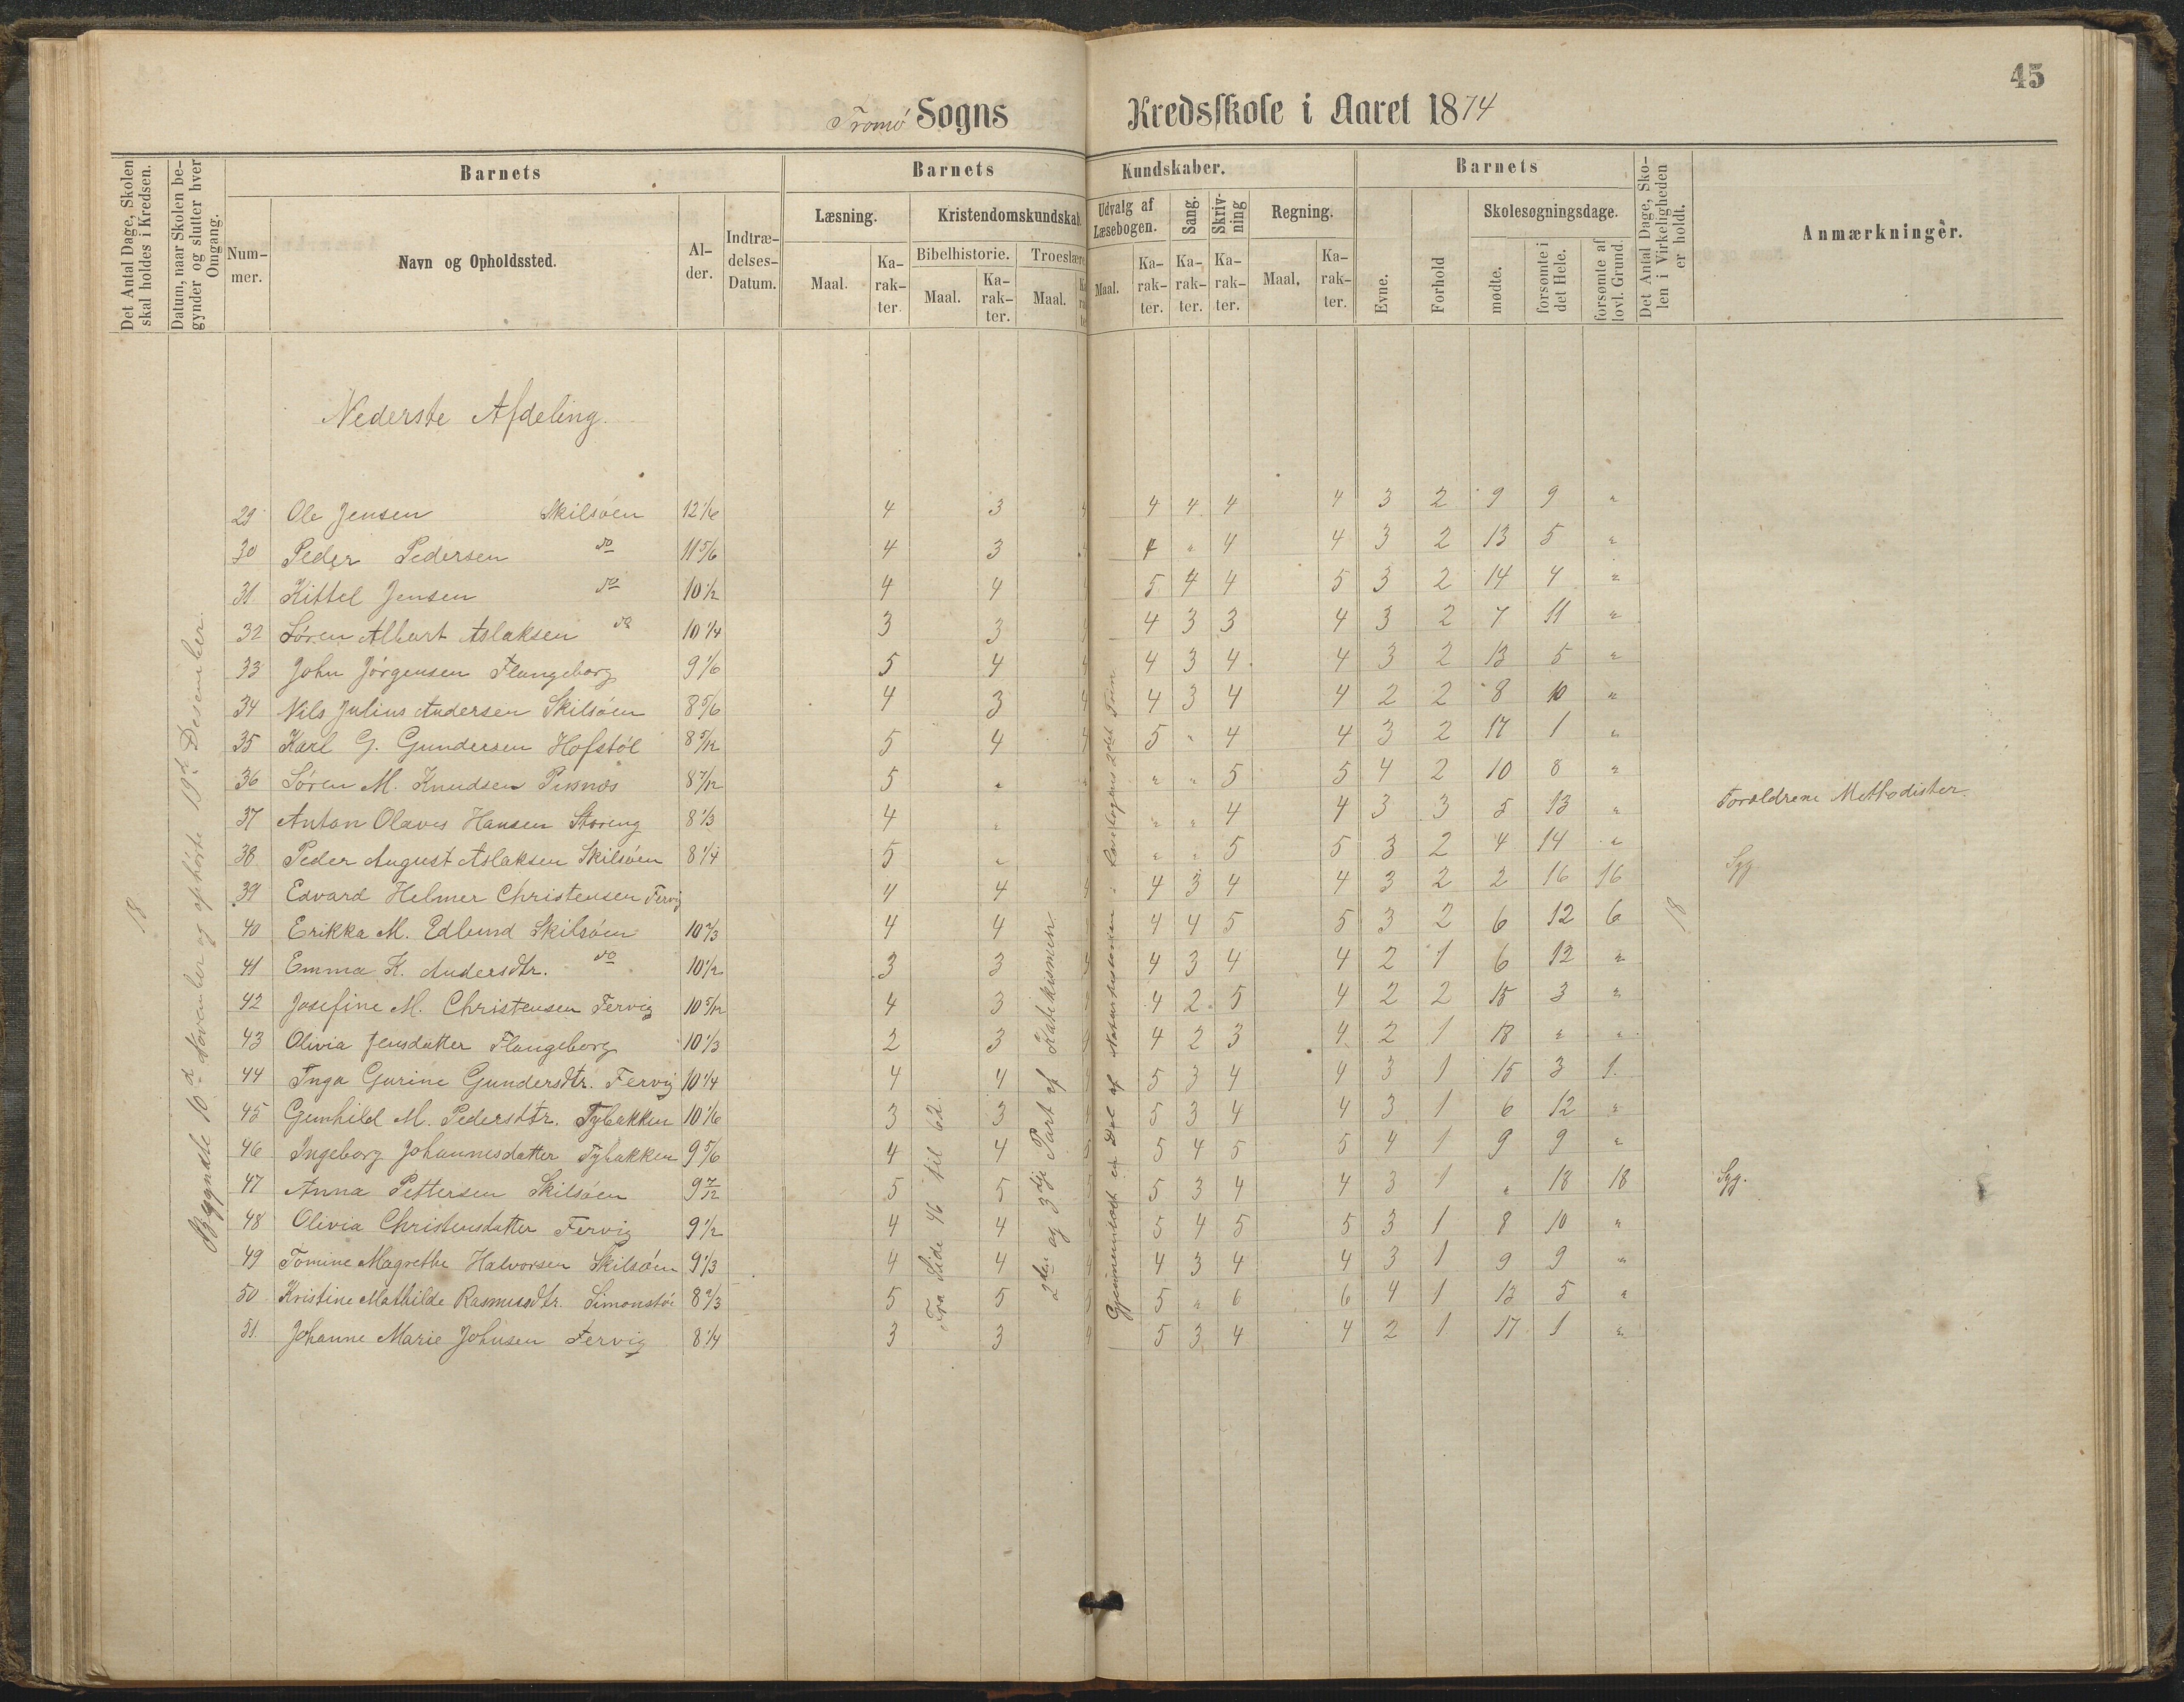 45
Tromö Sogns Kredsskole i Aaret 1874
Det Antal Dage, Skolen skal holdes i Kredsen.
Datum, naar Skolen begynder og slutter hver Omgang.
Barnets
Nummer.
Navn og Opholdssted.
Alder.
Indtrædelses-Datum.
Barnets Kundskaber.
Læsning.
Maal.
Karakter.
Kristendomskundskab
Bibelhistorie.
Maal.
Karakter.
Troeslære
Maal.
Udvalg af Læsebogen.
Maal.
Karakter.
Sang.
Karakter.
Skrivning
Karakter.
Regning.
Maal,
Karakter.
Barnets
Evne.
Forhold
Skolesøgningsdage.
mødte.
forsømte i det Hele.
forsømte af lovl. Grund.
Det Antal Dage, Skolen i Virkeligheden er holdt.
Anmærkninger.
Nederste Afdeling.
29 Ole Jensen Skilsöen 12 1/6 4 3 4 4 4 4 4 3 2 9 9 "
30 Peder Pedersen do 11 5/6 4 3 4 4 " 4 4 3 2 13 5 "
31 Kittel Jensen do 10 1/2 4 4 4 5 4 4 5 3 2 14 4 "
32 Sören Albert Aslaksen do 10 1/4 3 3 4 3 3 4 3 2 7 11 "
33 John Jörgensen Flangeborg 9 1/6 5 4 4 4 3 4 4 3 2 13 5 "
34 Nils Julius Andersen Skilsöen 8 5/6 4 3 4 4 3 4 4 2 2 8 10 "
35 Karl G. Gundersen Hofstöl 8 5/12 5 4 4 5 " 4 4 3 2 17 1 "
36 Sören M. Knudsen Pusnæs 8 7/12 5 " " " 5 5 4 2 10 8 "
37 Anton Olaves Hansen Storeng 8 1/3 4 " " " 4 4 3 3 5 13 " Foraldrene Methodister.
38 Peder August Aslaksen Skilsöen 8 1/4 5 " " " 5 5 3 2 4 14 "
39 Edvard Helmer Christensen Fervig 4 4 4 4 3 4 4 3 2 2 16 16 Syg
40 Erikka M. Edlund Skilsöen 10 2/3 4 4 4 4 5 5 3 2 6 12 6
41 Emma K. Andersdtr. do 10 1/2 3 3 4 3 4 4 2 1 6 12 "
42 Josefine M. Christensen Fervig 10 5/12 4 3 4 2 5 4 2 2 15 3 "
43 Olivia Jensdatter Flangeborg 10 1/3 2 3 4 2 3 4 2 1 18 " "
44 Inga Gurine Gundersdtr. Fervig 10 1/4 4 4 5 3 4 4 3 1 15 3 1
45 Gunhild M. Pedersdtr. Tybakken 10 1/6 3 3 4 5 3 4 4 3 1 6 12 "
46 Ingeborg Johannesdatter Tybakken 9 5/6 4 4 5 5 4 5 5 4 1 9 9 "
47 Anna Pettersen Skilsöen 9 7/12 5 5 5 5 3 4 4 3 1 " 18 18 Syg.
48 Olivia Christensdatter Fervig 9 1/2 4 4 5 4 5 5 3 1 8 10 "
49 Tomine Magrethe Halvorsen Skilsöen 9 1/3 4 4 4 4 3 4 4 3 1 9 9 "
50 Kristine Mathilde Rasmusdtr. Simonstö 8 2/3 5 5 5 5 " 6 6 4 1 13 5 "
51 Johanne Marie Johnsen Fervig 8 1/4 3 3 4 5 3 4 4 2 1 17 1 "
18
Begyndte 10d November og ophörte 19d Desember.
Fra Side 46 til 62.
2den og 3dje Part af Katekismen
Gjennemlæst en Del af Naturhistorien i Læsebogens 2det Trin
18